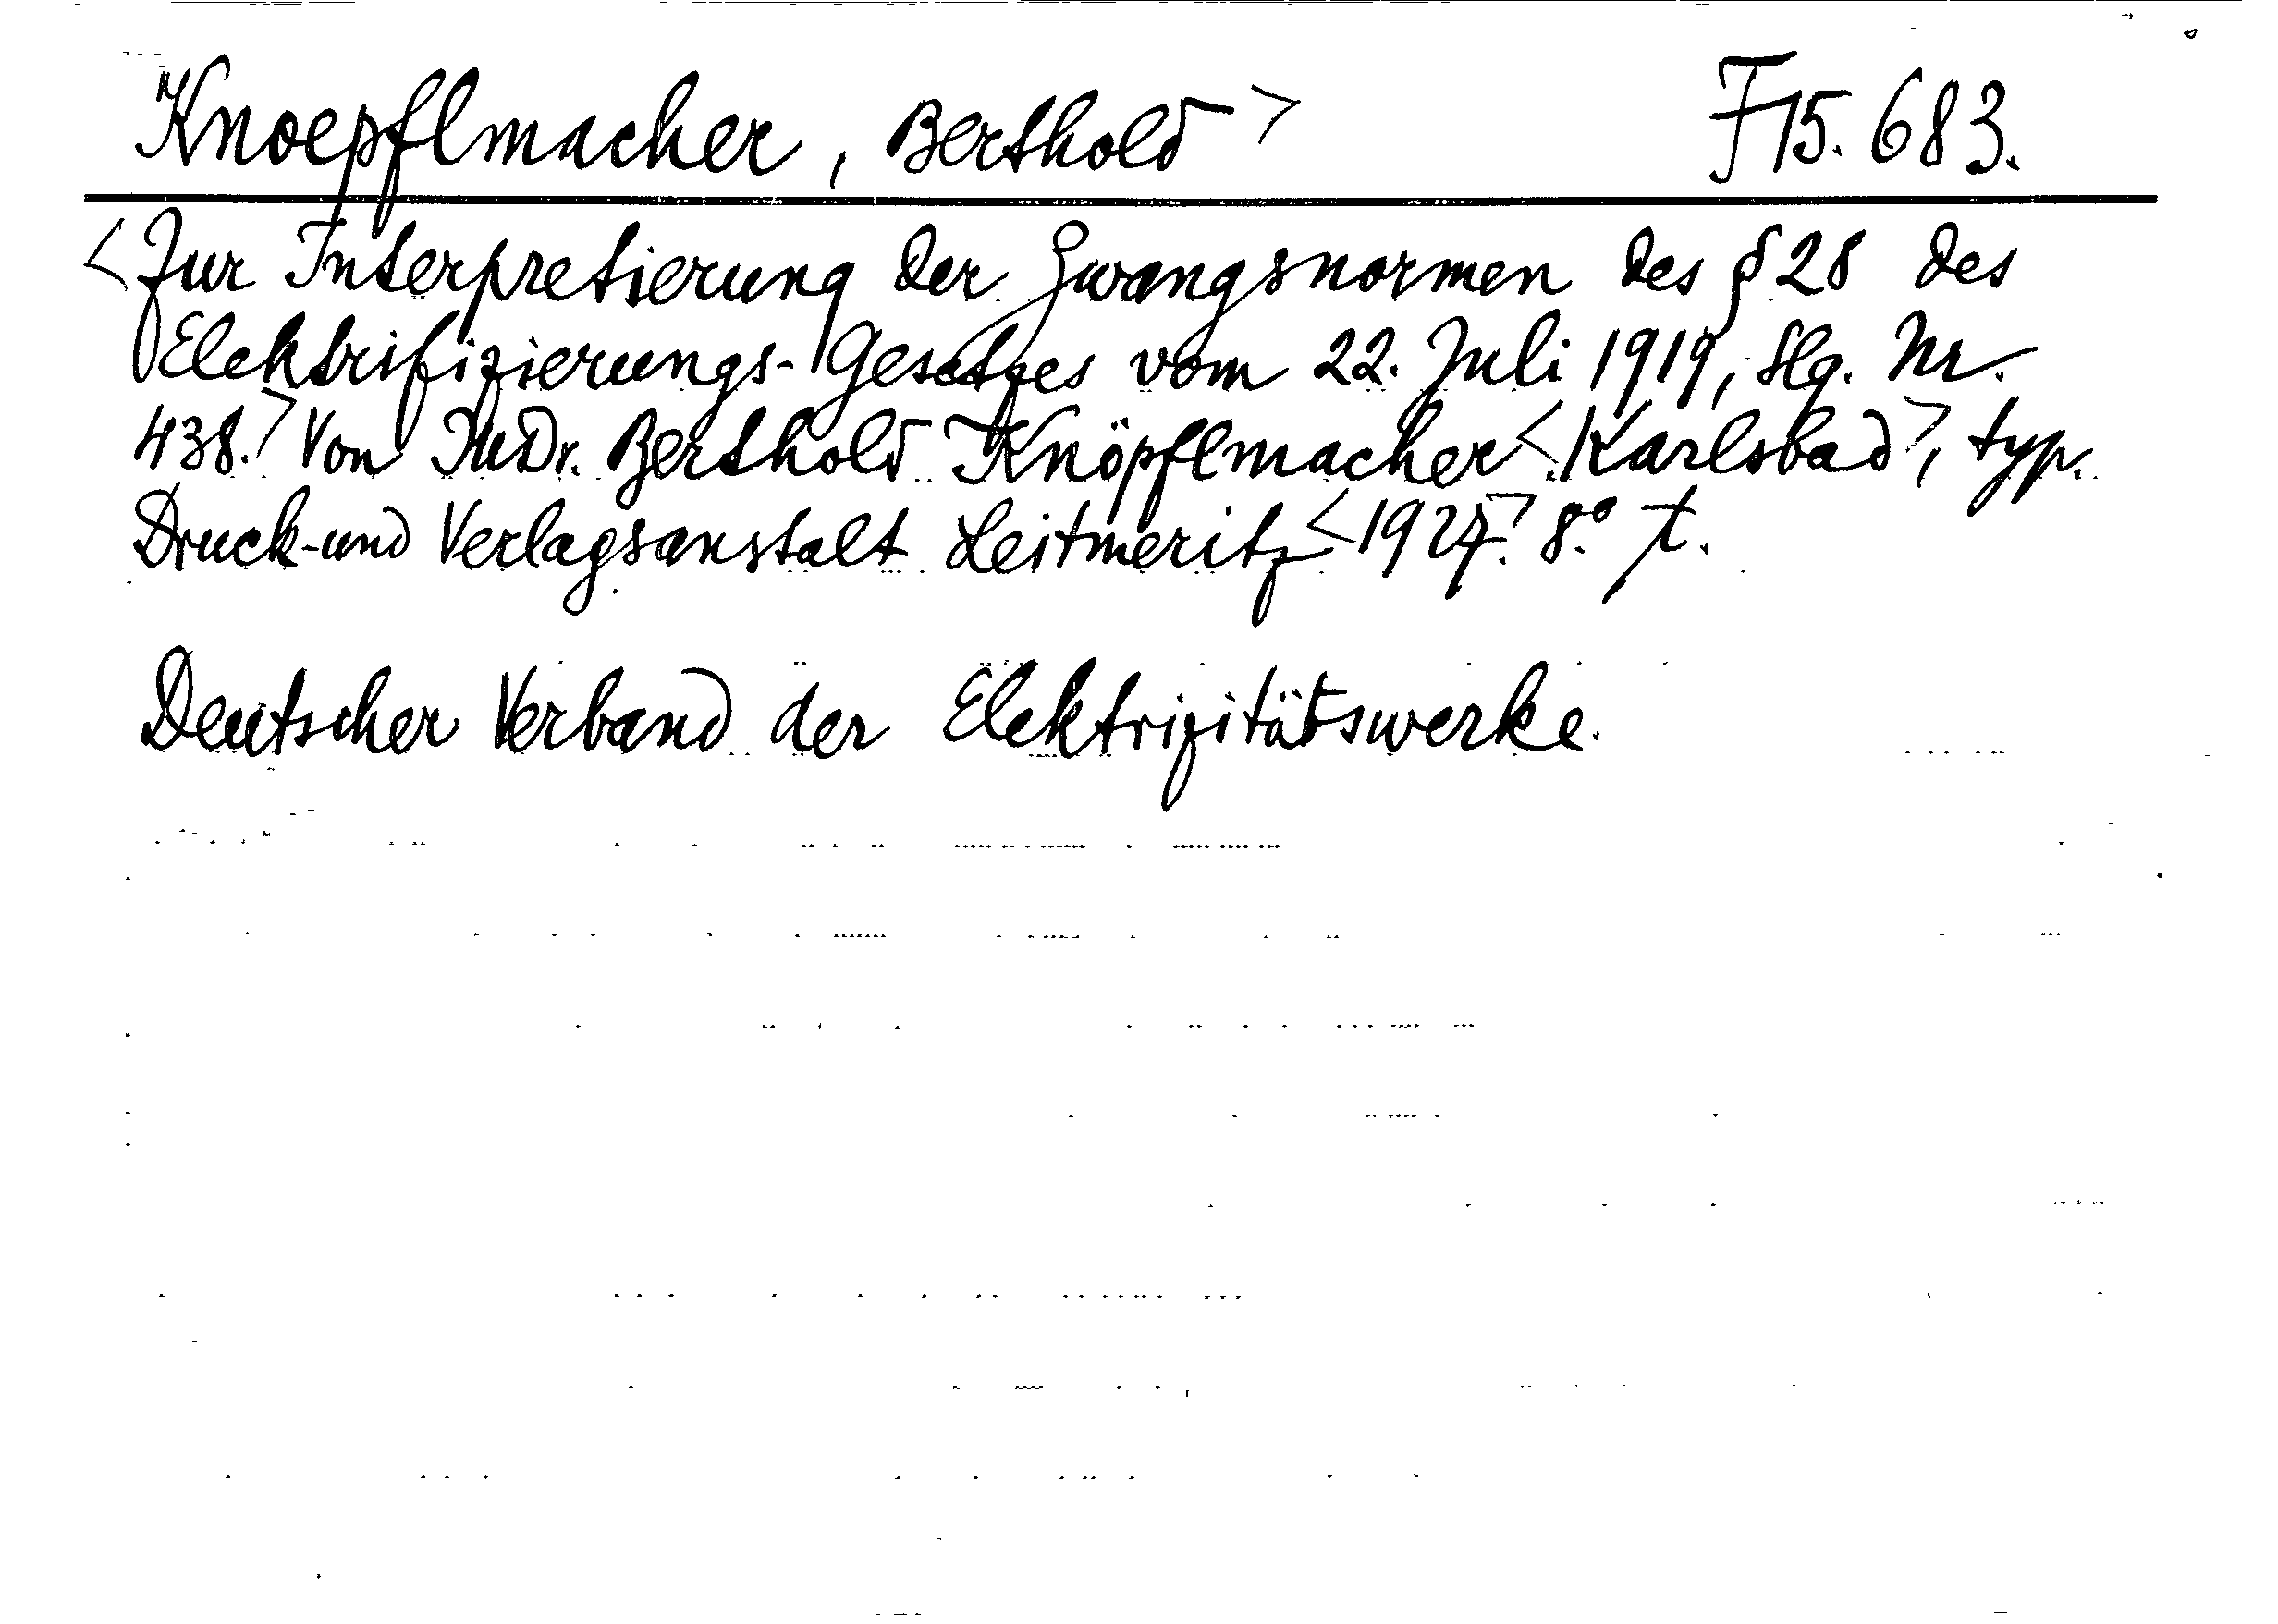 Knoepflmacher, Berthold> F15.683.
<Zur Interpretierung der Zwangsnormen des § 28 des
Elektrifizierungs-Gesetzes vom 22. Juli 1919, Slg. Nr.
438.> Von JUDr. Berthold Knöpflmacher <Karlsbad>, typ.
Druck-und Verlagsanstalt Leitmeritz <1927.> 8.° t.
Deutscher Verband der Elektrizitätswerke.